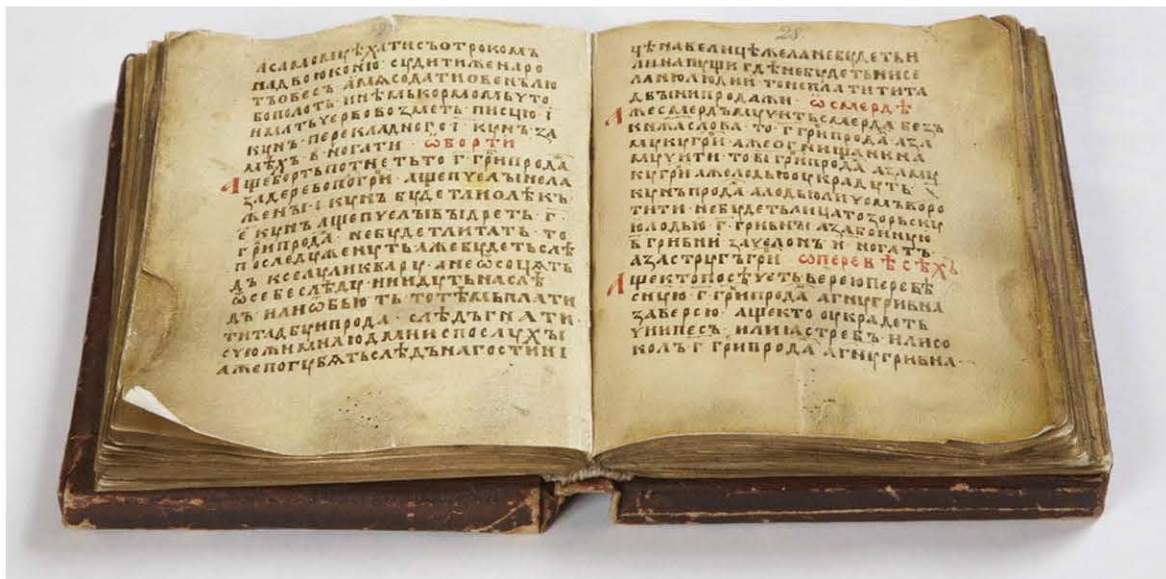 асамомуѣхатисъотрокомъ
надвоюконю судитиженаро
тъовесъ амѧсодатиовенълю
бополоть инѣмькормомьуто
имаѥтьчервовозметь писцю і
кунъ перекладногоі кунъ за
мѣхъ в ногати ѡборти
Ащебортьпотнетьто г грнпрода
задеревопогрн ащепчелынела
жены і кунъ будетлиолѣкъ
е кунъ ащепчелывыдреть г
грнпрода небудетлитать то
послѣдуженуть ажебудетьслѣ
дъ кселуликвару анеѡсочѧть
ѡсебеслѣду нинидутьнаслѣ
дъ илиѡбьють тотѣмьплати
титадбуипрода слѣдъгнати
сужимилюдмииспослухы
ажепогубѧтьслѣдънагостині
28
цѣнавелицѣжеланебудетьи
линапущигдѣнебудетьнисе
ланюлюдии тонеплатитита
двынипродажи ѡсмердѣ
Ажесмердъмучитьсмердабезъ
кнѧжаслова то г грнпрода аза
мукугрн ажеогнищанина
мучити тові грнпрода азаму
кугрн ажелодьюукрадуть з
кунъпрода алодьюлицомьворо
тити небудетьлицатозорьску
юлодью г гривны азабоиную
в гривни зачелонъ и ногатъ
азастругъгрн ѡперевѣсѣхъ
Ащектопосѣчетьверею перевѣ
сную г грнпрода агнугривна
заверею ащекто украдеть
чиипесъ илиястребъ илисо
колъ г грнпрода агнугривна